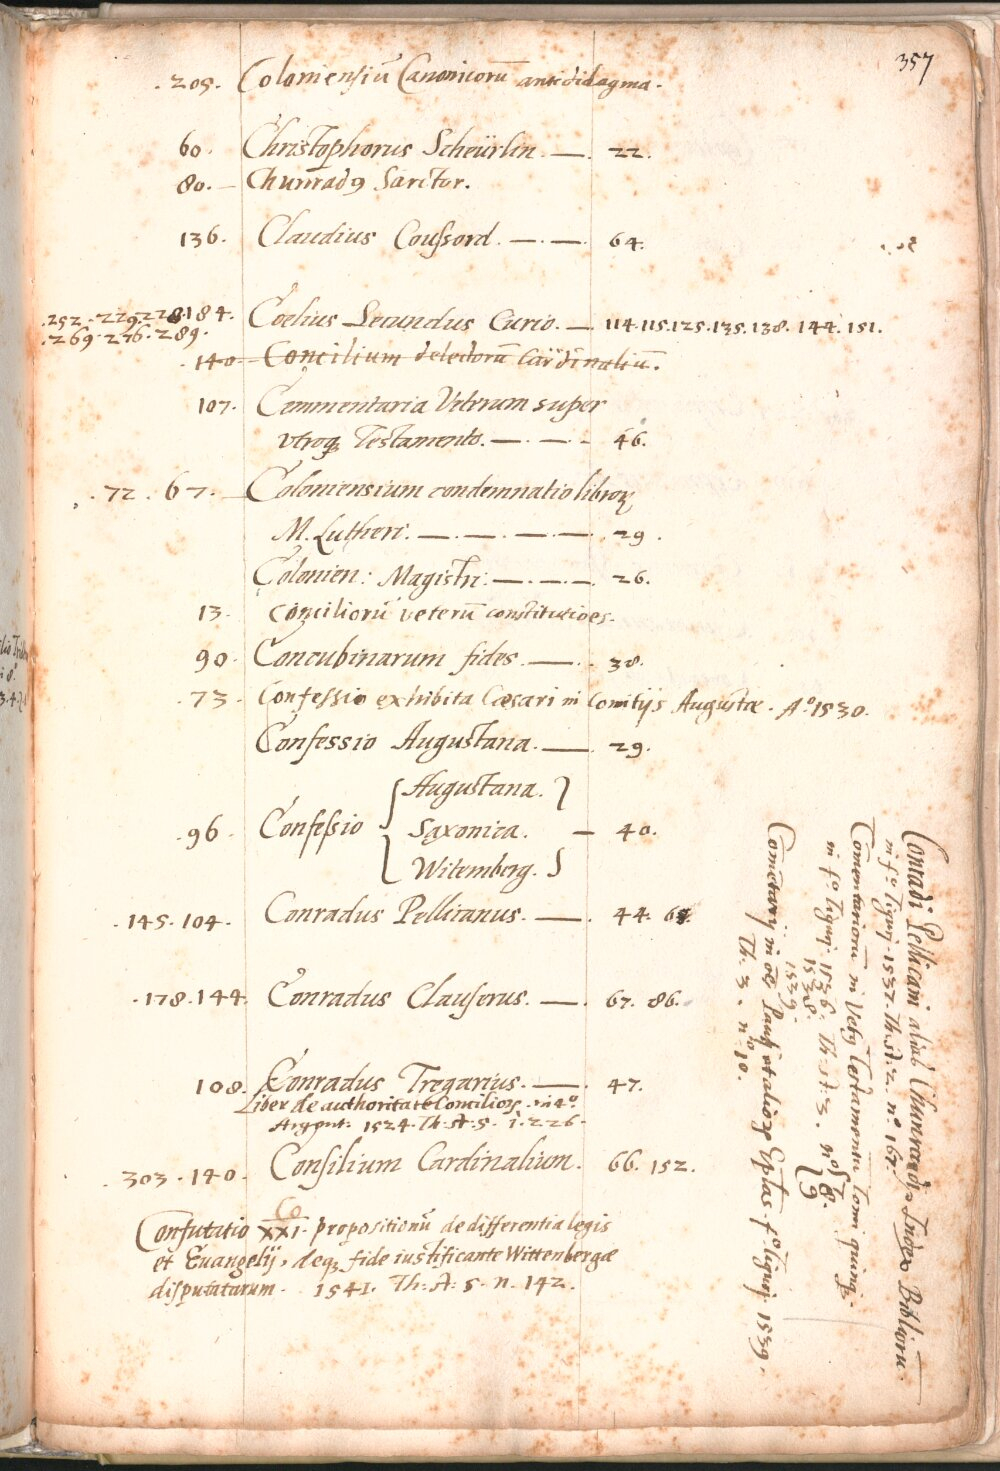 357
.205. Coloniensiū Canonicorū antididagma.
60. Christophorus Scheürlin. — 22.
80. — Chunradꝯ Saritor.
136. Claudius Coussord. — . — 64.
.252. 229. 228. 184. Coelius Secundus Curio. — 114. 115. 125. 135. 138. 144. 151.
.269. 276. 289.
.140. Concilium delectorū Cardinaliū.
107. Commentaria Veterum super
vtroq; Testamento. — . — . - 46.
.72. 67. Coloniensium condemnatio libroꝝ
M. Lutheri. — . — . — . — 29.
Colonien: Magistri: — . — . — 26.
13. Conciliorū veterū constitutioēs.
90. Concubinarum fides. — . 38.
.73. Confessio exhibita Cæsari in Comitijs Augustæ. Aº. 1530.
Confessio Augustana. — 29.
.96. Confessio { Augustana. }
Saxonica. — 40.
Witemberg.
.145. 104. Conradus Pellicanus. — . 44. 64.
.178. 144. Conradus Clauserus. — . 67. 86.
108. Conradus Tregarius. — . 47.
Liber de authoritate Concilioꝝ. in 4º.
Argent: 1524. Th: A: 5. i. 226.
.303. 140. Consilium Cardinalium. 66. 152.
Co
Confutatio XXI. propositionū de differentia legis
et Euangelij, deq; fide iustificante Wittenbergæ
disputatarum. 1541. Th: A: 5. n. 142.
Conradi Pellicani aliàs Chunradi, Index Bibliorū
in fº. Tiguri. 1537. Th: st: 2. nº. 167.
Comentariorū in Vetꝯ Testamentū Tomi quinq;.
in fº. Tiguri. 1536. Th: st: 3. nº { 8.
1538. 9
1539.
Comētarij in oēs Pauli et alioꝝ Eplās. fº. Tiguri. 1539.
Th: 3. nº. 10.